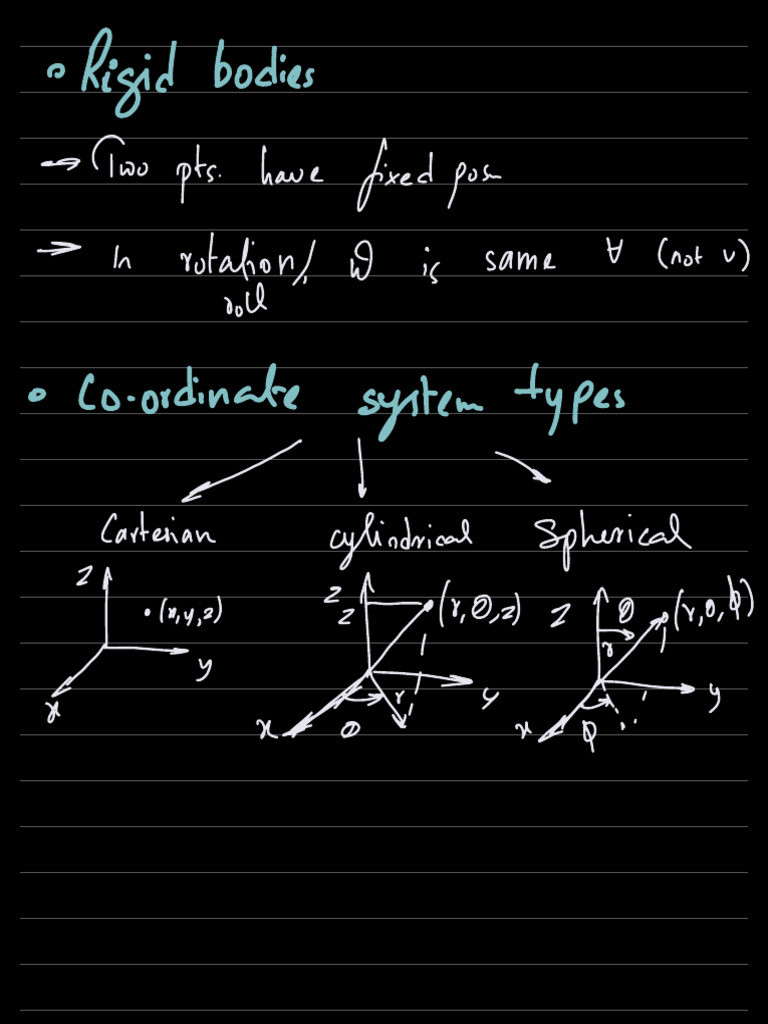 • Rigid bodies
→ Two pts. have fixed posn
→ In rotation/ ω is same ∀ (not v)
roll
• Co-ordinate system types
Cartesian cylindrical Spherical
z •(x,y,z) y x
z z (r,θ,z) y x θ r
z θ (r,θ,ϕ) r y x ϕ